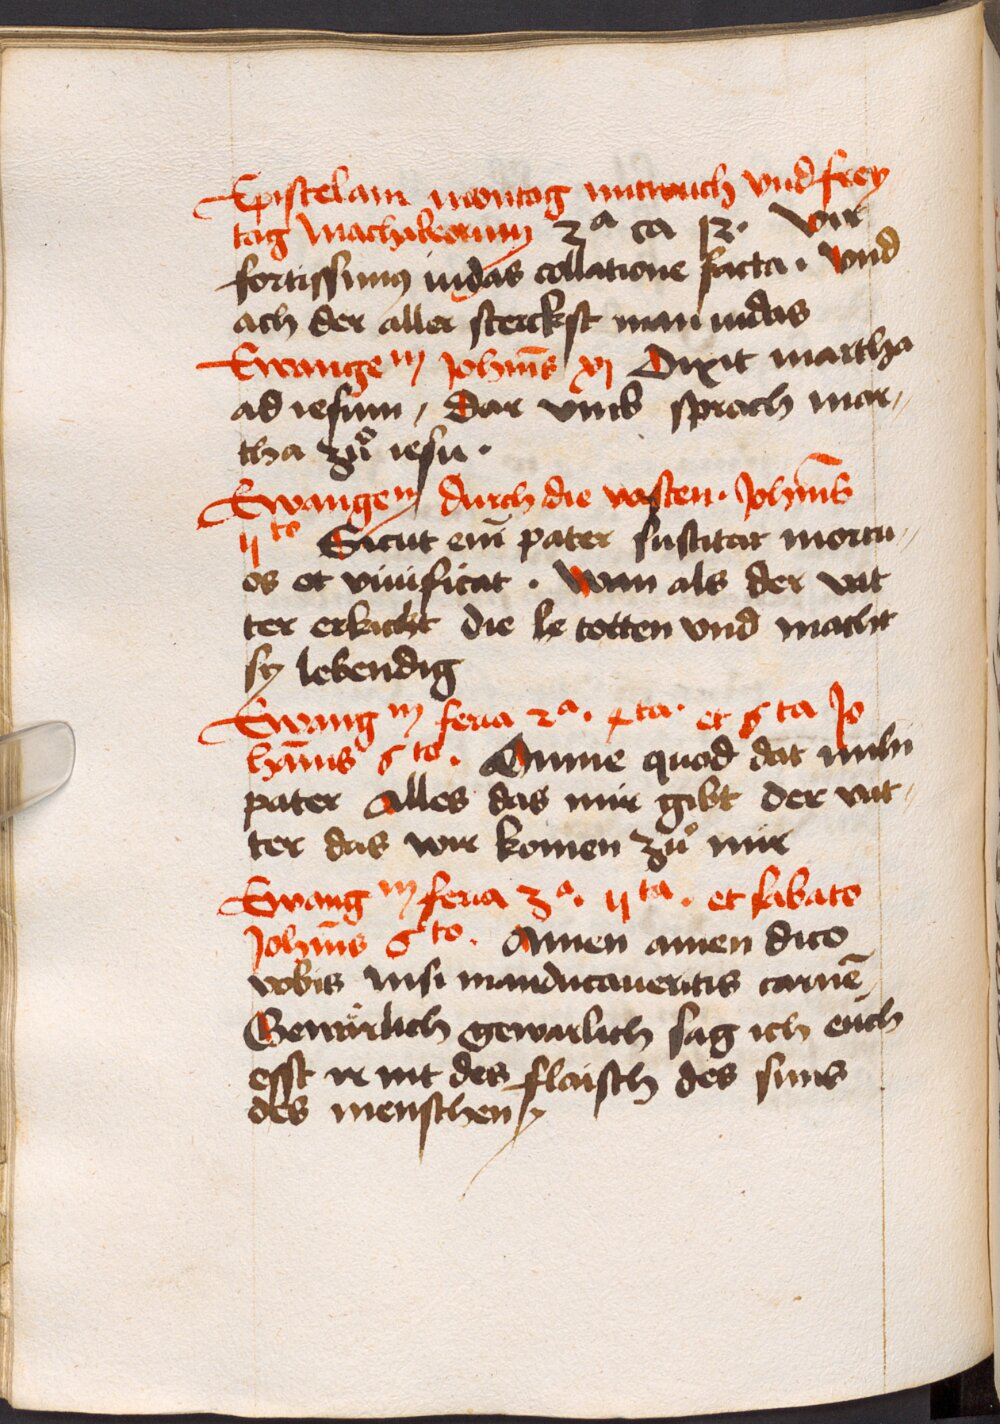 Epistelam montag mitwuch vnd frey
tag Machabeorum 2ᵃ ca 12. Vir
fortissimꝰ iudas collatione facta. Vnd
ach der aller sterckst man iudas
Ewangeᵐ Joh̄nis xj Dixit martha
ad iesum / Dar vmb sprach mar⸗
tha zuͦ iesu.
Ewangeᵐ durch die vasten. Joh̄nis
vᵗᵒ Sicut eni̅ pater suscitat mortu⸗
os et viuificat. Wan als der vat
ter erkickt die le totten vnd macht
sy lebendig
Ewangᵐ feria 2ᵃ. 4ᵗᵃ. et 6ᵗᵃ Jo
ha̅nis 6ᵗᵒ. Omne quod dat mihi
pater Alles das mir gibt der vat⸗
ter das wir komen zuͦ mir
Ewangᵐ feria 3ᵃ. vᵗᵃ. et sabato
Joh̄nis 6ᵗᵒ. Amen amen dico
vobis nisi manducaueritis carne̅
Gewärlich gewarlich sag ich eüch
esst ir nit des flaisch des suns
des menschen